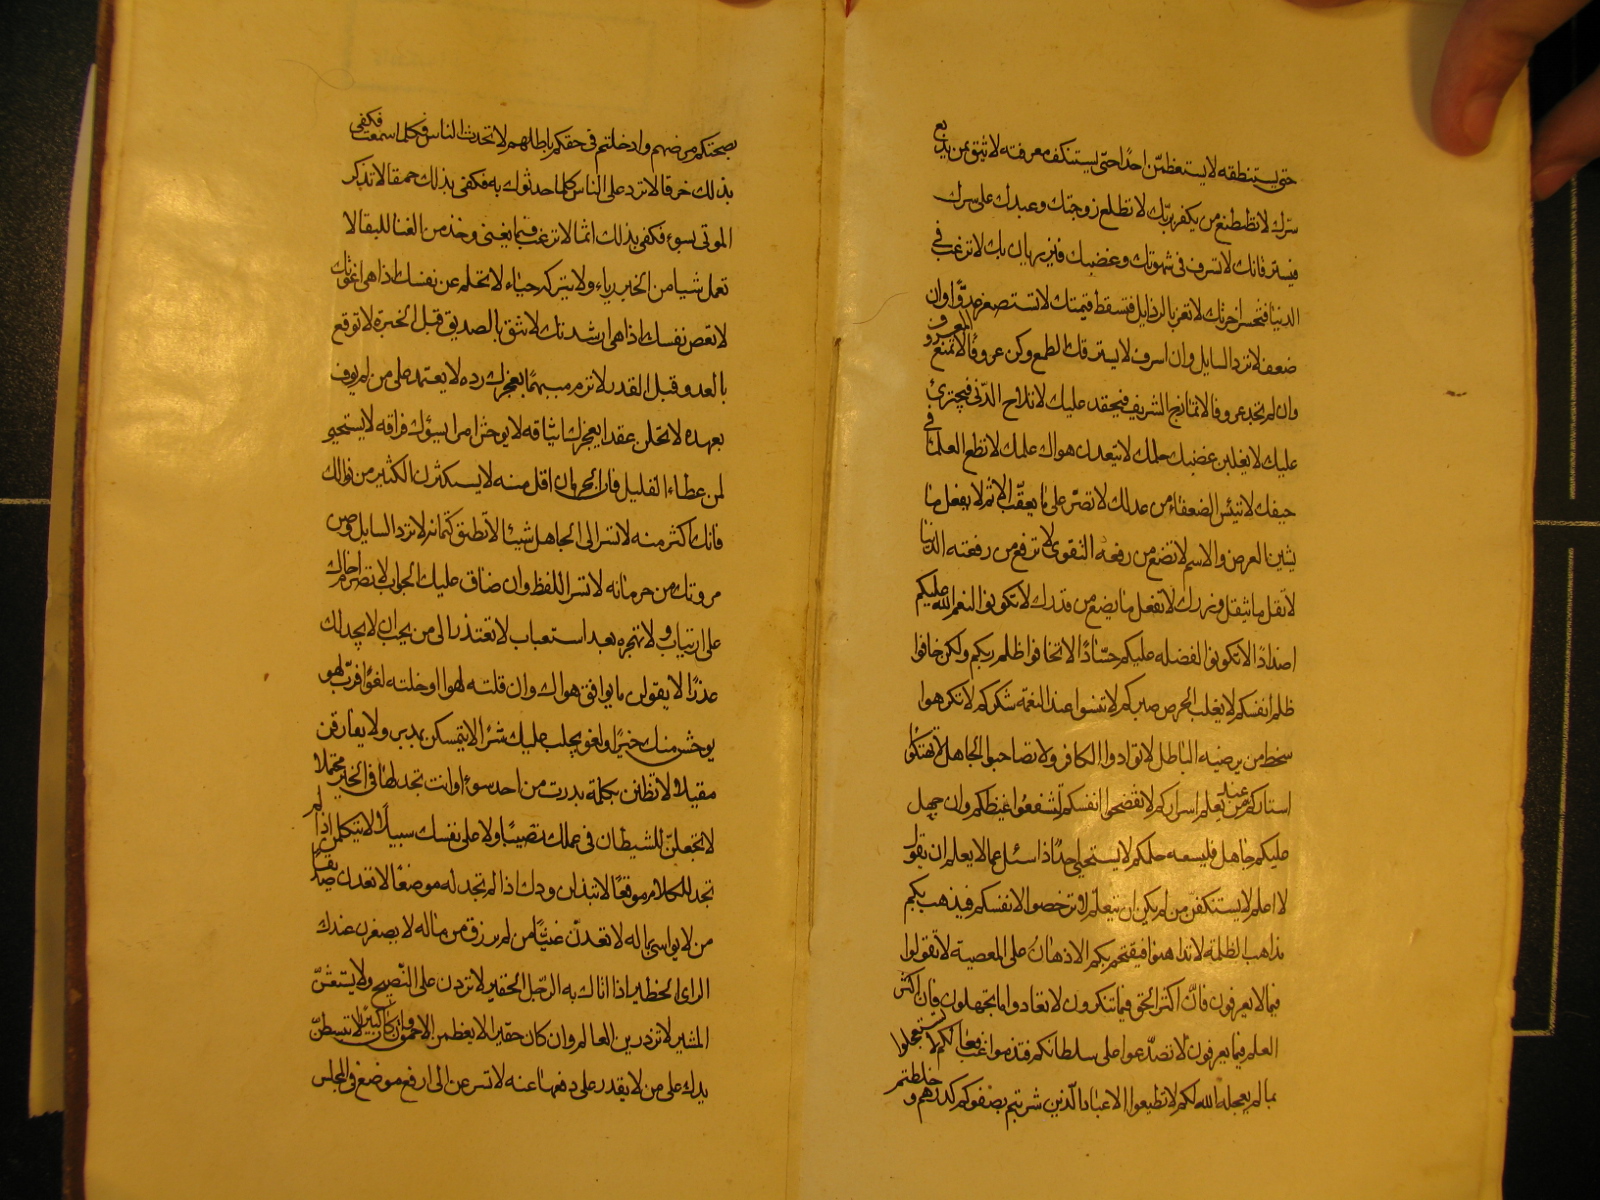 حتى يستنطقه لا يستعظمنّ احدًا حتى يستنكف معرفته لا تثق بمن يذيع
سرّك لا تصطنع من يكفر برّك لا تطلع زوجتك وعبدك على سرك
فيسترقانك لا تسرف فى شهوتك وغضبك فيزريان بك لا ترغب فى
الدنيا فتخسر اخرتك لا تغتر بالرذايل فتسقط قيمتك لا تستصغر عدوّا وان
ضعف لا ترد السايل وان اسرف لا يسترقك الطمع وكن عزوفًا لا تمنع المعروف
وان لم تجد عروفا لا تمازح الشريف فيحقد عليك لا تلاح الدّنى فيجترئ
عليك لا يغلبن غضبك حلمك لا يبعدن هواك علمك لا تطمع العظماء فى
حيفك لا تيئس الضعفاء من عدلك لا تصرّ على ما يعقّب الاثم لا يفعل ما
يشين العرض والاسم لا تضع من رفعه التقوى لا ترفع من رفعته الدنيا
لا تقل ما يثقل وزرك لا تفعل ما يضع من قدرك لا تكونوا لنعم الله عليكم
اضدادًا لا تكونوا لفضله عليكم حسّادًا لا تخافوا ظلم ربكم ولكن خافوا
ظلم انفسكم لا يغلب الحرص صبركم لا تنسوا عند النعمة شكركم لا تكرهوا
سخط من يرضيه الباطل لا توادوا الكافر ولا تصاحبوا الجاهل لا تهتكوا
استاركم عند من يعلم اسراركم لا تفضحوا انفسكم لتشفعوا غيظكم وان جهل
عليكم جاهل فليسعه حلمكم لا يستحيى احدًا اذا سئل عما لا يعلم ان يقول
لا اعلم لا يستنكفن من لم يكن ان يتعلم لا ترخصوا لانفسكم فيذهب بكم
مذاهب الظلمة لا تداهنوا فيقتحم بكم الادهان على المعصية لا تقولوا
فيما لا يعرفون فانّ اكثر الحق فيما تنكرون لا تعادوا ما تجهلون فان اكثر
العلم فيما يعرفون لا تصدّعوا على سلطانكم فتذموا غب فعالكم لا تستعجلوا
بما لم يعجله الله لكم لا تطيعوا الادعياء الّذين شربتم بصفوكم كدرهم وخلطتم
بصحتكم مرضهم وادخلتم فى حقكم باطلهم لا تحدث الناس فكلما اسمعت فكفى
بذلك خرقا لا ترد على الناس كلما حدثوك به فكفى بذلك حمقا لا تذكر
الموتى بسوء فكفى بذلك اثما لا ترغب فيما يفنى وخذ من الفنا للبقا لا
تعمل شيا من الخير رياء ولا تتركه حياء لا تحلم عن نفسك اذا هى اغوتك
لا تعص نفسك اذا هى ارشدتك لا تثق بالصديق قبل الخبرة لا توقع
بالعدو قبل القدر لا ترم سهمًا يعجزك رده لا يعتمد على من لم يوف
بعهده لا تحلن عقدا يعجزك ايثاقه لا يوحش امرا يسؤك فراقه لا يستحيى
لمن عطاء القليل فان الحرمان اقل منه لا يستكثرن الكثير من نوالك
فانك اكثر منه لا تسر الى الجاهل شيئا لا تطيق كتمانه لا ترد السايل وصن
مروتك من حرمانه لا تسر اللفظ وان ضاق عليك الجواب لا تصرم اخاك
على ارتياب ولا تهجره بعد استعتاب لا تعتذر الى من يحب ان لا يجد لك
عذرًا لا يقولن ما يوافق هواك وان قلته لهوا او خلته لغوًا فرب لهو
يوحش منك خيرًا ولغو يجلب عليك شرًا لا يتمسكن بمدبر ولا يفارقن
مقبلا لا تظنن بكلمة بدرت من احد سوءا وانت تجد لها فى الخير محتملا
لا تجعلنّ للشيطان فى عملك نصيبًا ولا على نفسك سبيلًا لا يتكلمن اذا لم
تجد للكلام موقعًا لا تبذلن ودك اذا لم تجد له موضعًا لا تعدن صديقًا
من لا يواسى بماله لا تعدنّ غنيًّا من لم يرزق من ماله لا يصغرن عندك
الراى الخطير اذا اتاك به الرّجل الحقير لا تردن على النّصيح ولا يستغشنّ
المشير لا تزدرين العالم وان كان حقيرا لا يعظمن الاحمق وان كان كبيرًا لا تبسطنّ
يدك على من لا يقدر على دفعها عنه لا تسرعن الى ارفع موضع فى المجلس